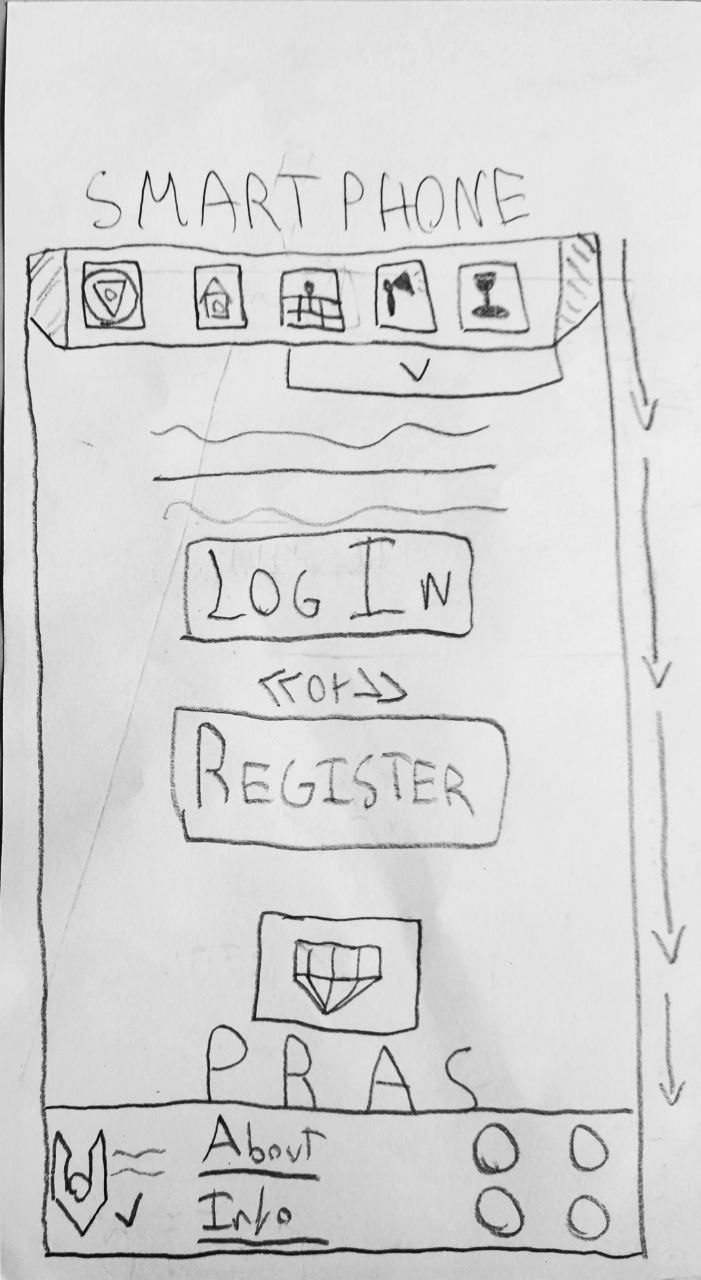 SMARTPHONE
LOG IN
<<or>>
REGISTER
PRAS
About
Info